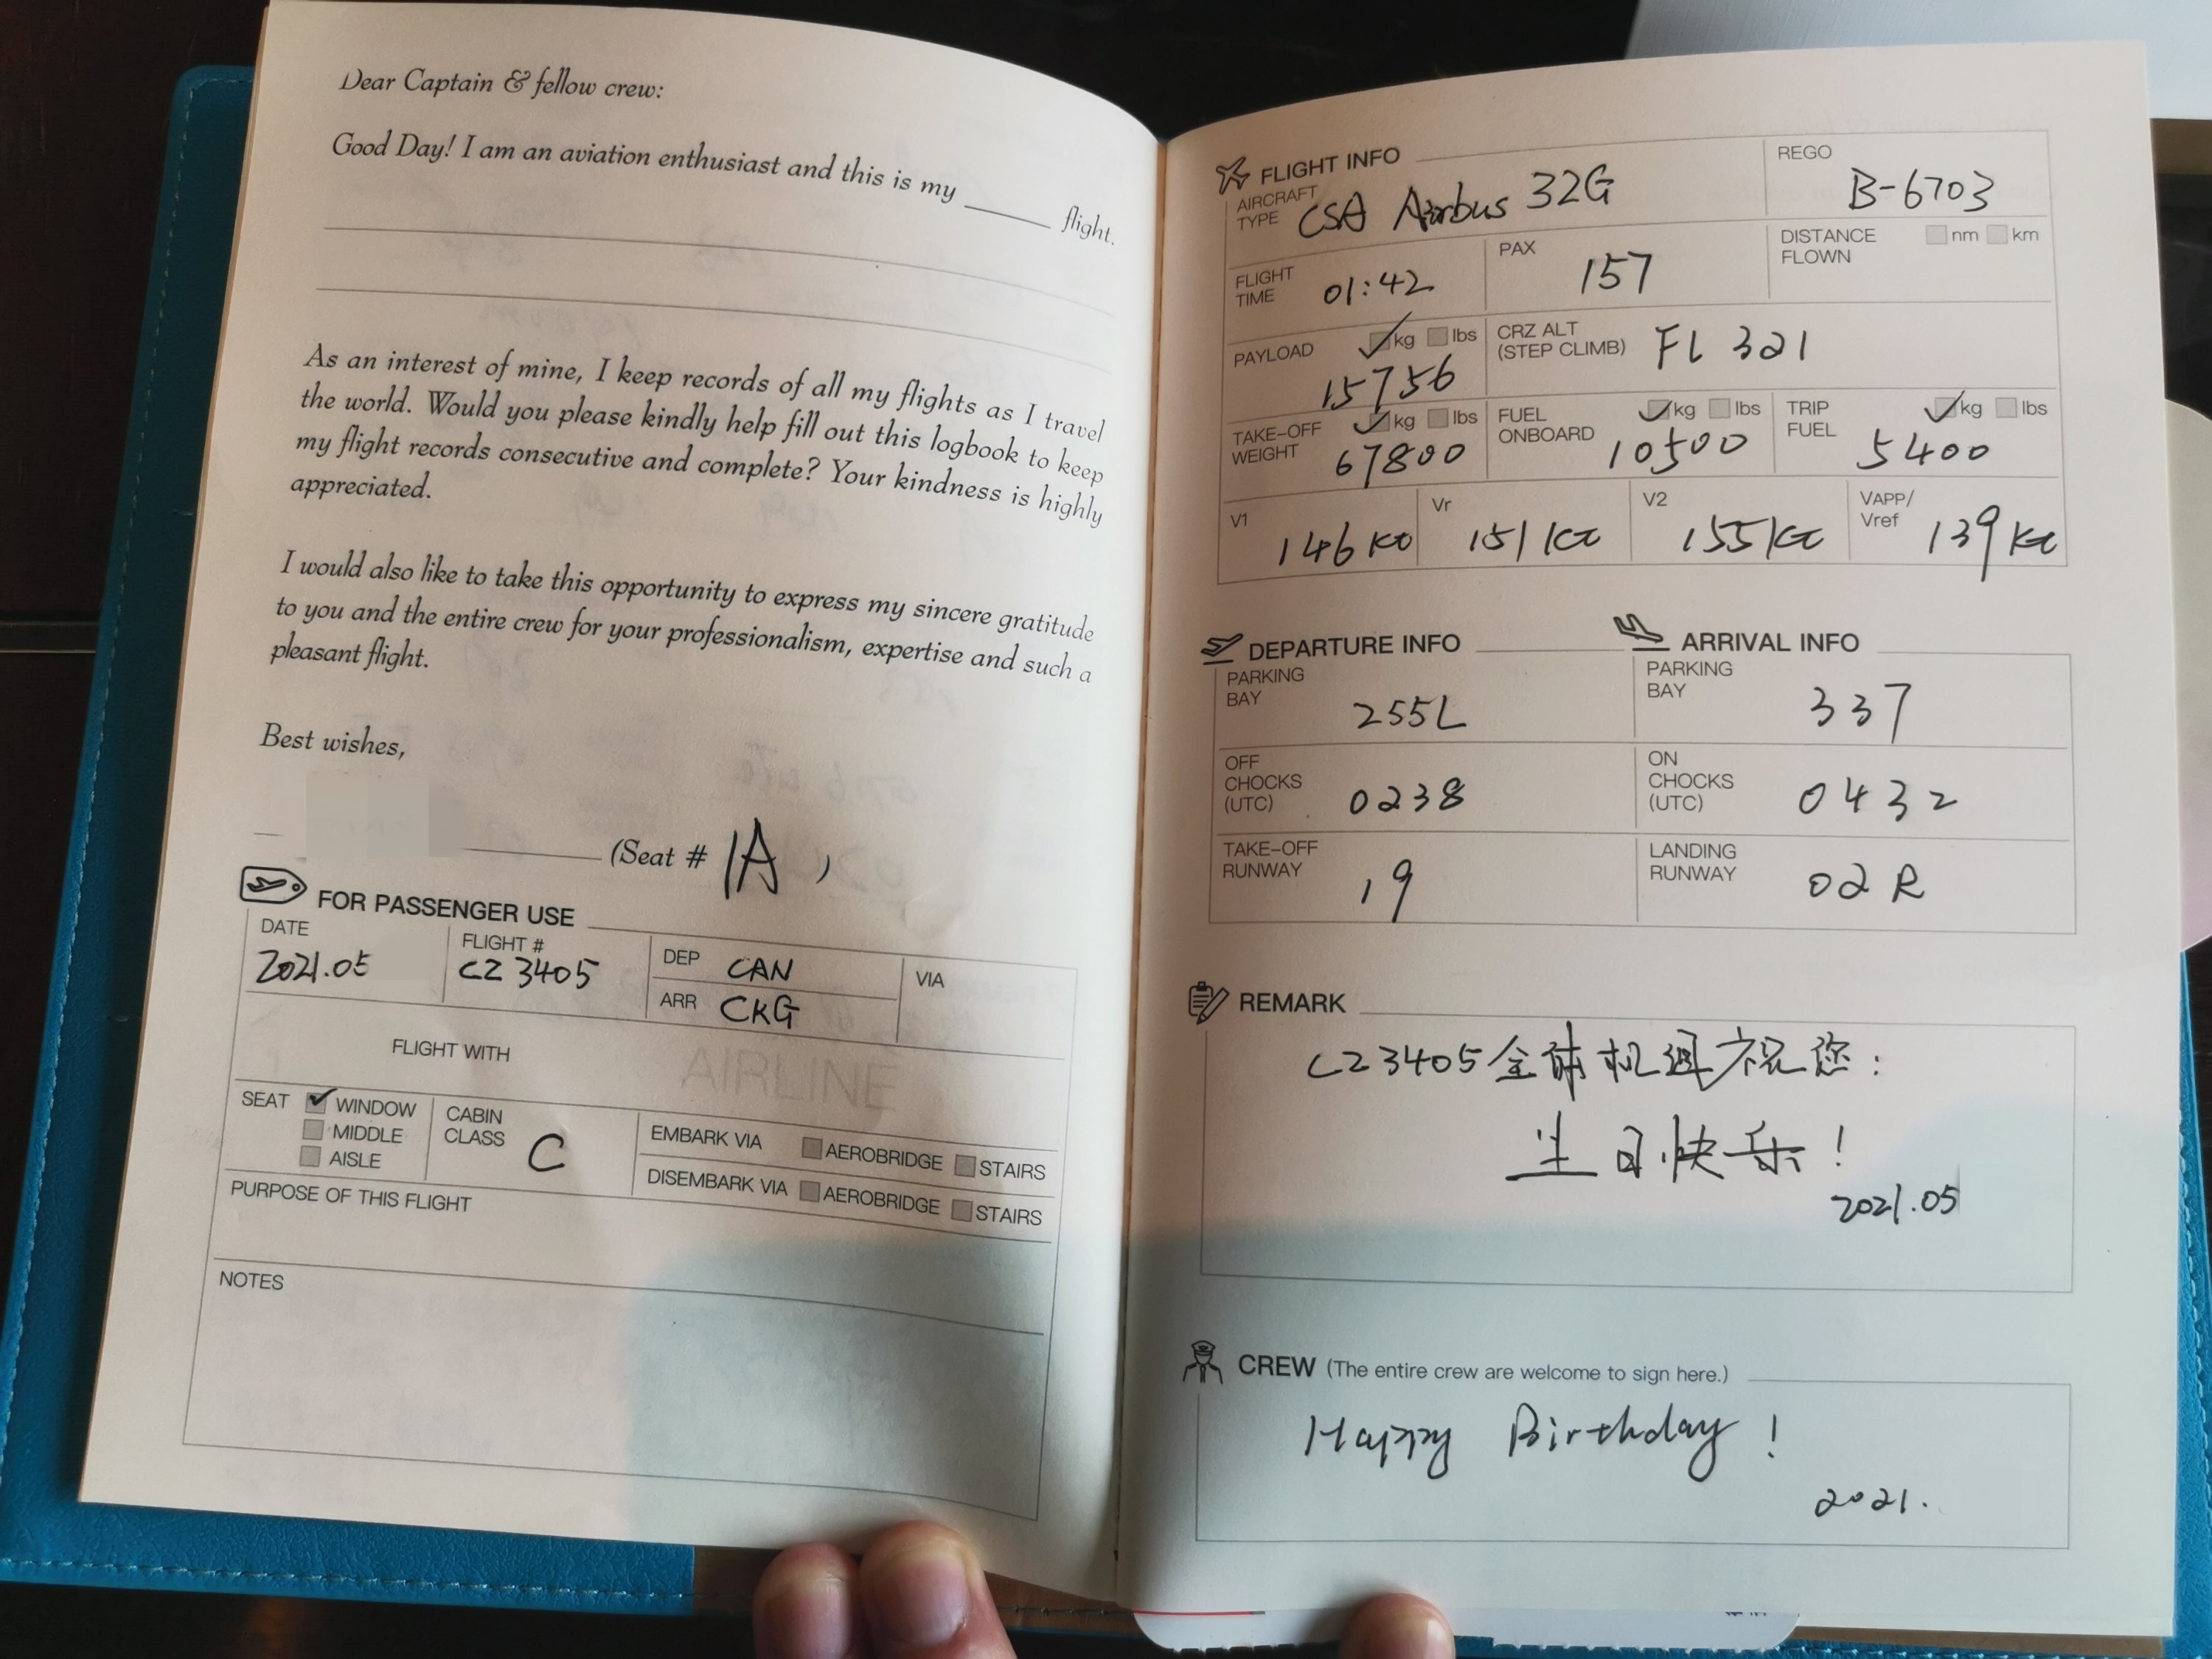 Dear Captain & fellow crew:
Good Day! I am an aviation enthusiast and this is my ______ flight.
As an interest of mine, I keep records of all my flights as I travel
the world. Would you please kindly help fill out this logbook to keep
my flight records consecutive and complete? Your kindness is highly
appreciated.
I would also like to take this opportunity to express my sincere gratitude
to you and the entire crew for your professionalism, expertise and such a
pleasant flight.
Best wishes,
(Seat # 1A )
FOR PASSENGER USE
DATE
2021.05
FLIGHT #
CZ 3405
DEP CAN
ARR CKG
VIA
FLIGHT WITH
AIRLINE
SEAT WINDOW
MIDDLE
AISLE
CABIN
CLASS C
EMBARK VIA AEROBRIDGE STAIRS
DISEMBARK VIA AEROBRIDGE STAIRS
PURPOSE OF THIS FLIGHT
NOTES
FLIGHT INFO
AIRCRAFT
TYPE CSA Airbus 32G
REGO
B-6703
FLIGHT
TIME 01:42
PAX
157
DISTANCE
FLOWN nm km
PAYLOAD kg lbs
15756
CRZ ALT
(STEP CLIMB) FL 321
TAKE-OFF
WEIGHT kg lbs
67800
FUEL
ONBOARD kg lbs
10500
TRIP
FUEL kg lbs
5400
V1
146 kt
Vr
151 kt
V2
155 kt
VAPP/
Vref 139 kt
DEPARTURE INFO
PARKING
BAY
255L
OFF
CHOCKS
(UTC) 0238
TAKE-OFF
RUNWAY
19
ARRIVAL INFO
PARKING
BAY
337
ON
CHOCKS
(UTC) 0432
LANDING
RUNWAY 02R
REMARK
CZ3405全体机组祝您:
生日快乐!
2021.05
CREW (The entire crew are welcome to sign here.)
Happy Birthday!
2021.